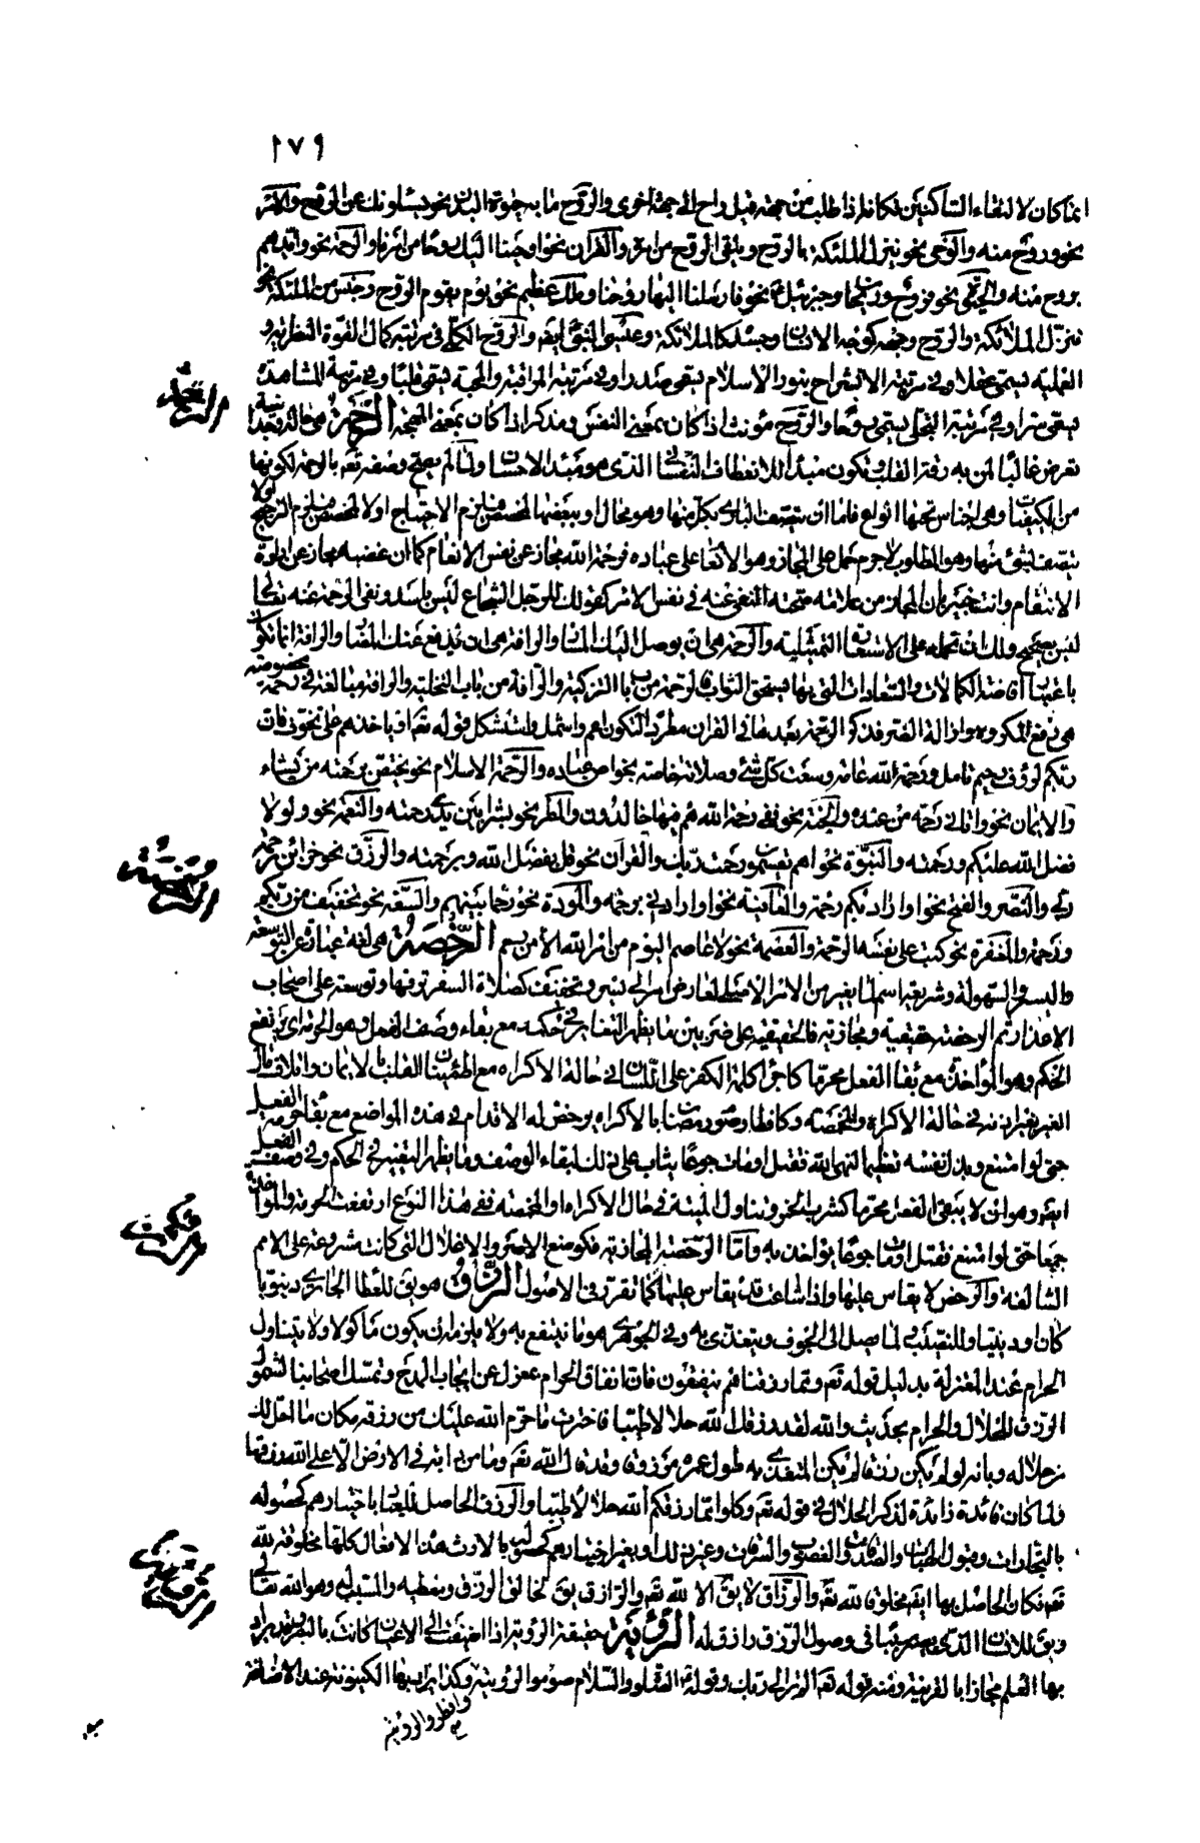 ١٧٩
انما كان لالتقاء الساكنين فكانه اذا طلب من جهة قيل راح الى جهة اخرى والروح ما به حيوة البدن نحو يسئلونك عن الروح والامر
نحو وروح منه والوحي نحو ينزل الملئكة بالروح ويلقى الروح من امره والقران نحو اوحينا اليك روحا من امرنا والرحمة نحو وايدهم
بروح منه نحو فروح وريحان وجبرئيل نحو فارسلنا اليها روحنا وملك عظيم نحو يوم يقوم الروح وجنس من الملئكة نحو
تنزل الملائكة والروح وجهه كوجه الانسان وجسده كالملائكة وعيسى النبي ايضا والروح الكلي في مرتبة كمال القوة النظرية و
العملية يسمى عقلا وفي مرتبة الانشراح بنور الاسلام يسمى صدرا وفي مرتبة المراقبة والمحبة يسمى قلبا وفي مرتبة المشاهدة
يسمى سرا وفي مرتبة التجلي يسمى روحا والروح مؤنث اذا كان بمعنى النفس ومذكر اذا كان بمعنى المهجة الرحمة هي حالة وجدانية
تعرض غالبا لمن به رقة القلب وتكون مبدأ للانعطاف النفساني الذي هو مبدء الاحسان ولما لم يصح وصفه تعالى بالرحمة لكونها
من الكيفيات وهي اجناس تحتها انواع فاما ان يتصف الباري بكل منها وهو محال او ببعضها لمخصص فيلزم الاحتياج او لا لمخصص فيلزم الترجيح او لا
يتصف بشئ منها وهو المطلوب لا جرم حمل على المجاز وهو الانعام على عباده فرحمة الله مجاز عن نفس الانعام كما ان غضبه مجاز عن ارادة
الانتقام وانت خبير بان المجاز من علاماته صحة النفي عنه في نفس الامر كقولك للرجل الشجاع ليس باسد ونفي الرحمة عنه تعالى
ليس بصحيح ولك ان تحمله على الاستعارة التمثيلية والرحمة هي ان يوصل اليك المسار والرافة هي ان يدفع عنك المضار والرافة انما تكون
باعتبار افاضة الكمالات والسعادات التي بها يستحق الثواب فالرحمة من باب التزكية والرافة من باب التخلية والرافة مبالغة في رحمة مخصوصة
هي دفع المكروه وازالة الضر فذكر الرحمة بعدها في القران مطردا لتكون اعم واشمل واستشكل قوله تعالى او ياخذهم على تخوف فان
ربكم لرؤف رحيم فتامل ورحمة الله عامة وسعت كل شئ وصلاته خاصة بخواص عباده والرحمة الاسلام نحو يختص برحمته من يشاء
والايمان نحو واتاني رحمة من عنده والجنة نحو ففي رحمة الله هم فيها خالدون والمطر نحو بشرا بين يدي رحمته والنعمة نحو ولولا
فضل الله عليكم ورحمته والنبوة نحو اهم يقسمون رحمت ربك والقران نحو قل بفضل الله وبرحمته والرزق نحو خزائن رحمة
ربي والنصر والفتح نحو او اراد بكم رحمة والعافية نحو او ارادني برحمة والمودة نحو رحماء بينهم والسعة نحو تخفيف من ربكم
ورحمة والمغفرة نحو كتب على نفسه الرحمة والعصمة نحو لا عاصم اليوم من امر الله الا من رحم الرخصة هي لغة عبارة عن التوسعة
واليسر والسهولة وشريعة اسم لما يغير من الامر الاصلي لعارض امر الى يسر وتخفيف كصلاة السفر ترفيها وتوسعة على اصحاب
الاعذار ثم الرخصة حقيقية ومجازية فالحقيقية على ضربين ما يظهر التغاير في حكمه مع بقاء وصف الفعل وهو الحرمة اي يرتفع
الحكم وهو المؤاخذة مع بقاء الفعل محرما كاجراء كلمة الكفر على اللسان في حالة الاكراه مع اطمئنان القلب بالايمان واتلاف مال
الغير بغير اذنه في حالة الاكراه والمخمصة وكافطار صوم رمضان بالاكراه يرخص له الاقدام في هذه المواضع مع بقاء حرمة الفعل
حتى لو امتنع وبذل نفسه تعظيما لنهي الله فقتل او مات جوعا يثاب على ذلك لبقاء الوصف وما يظهر التغيير في الحكم وفي وصف الفعل
ايضا وهو ان لا يبقى الفعل محرما كشرب الخمر وتناول الميتة في حال الاكراه او المخمصة ففي هذا النوع ارتفعت الحرمة والمؤاخذة
جميعا حتى لو امتنع فقتل او مات جوعا يؤاخذ به واما الرخصة المجازية فكوضع الاصر والاغلال التي كانت مشروعة على الامم
السالفة والرخص لا يقاس عليها واذا شاعت قد يقاس عليها كما تقرر في الاصول الرزق هو يقال للعطاء الجاري دينويا
كان او دينيا وللنصيب ولما يصل الى الجوف ويتغذى به وفي الجوهري هو ما ينتفع به ولا يلزم ان يكون مأكولا ولا يتناول
الحرام عند المعتزلة بدليل قوله تعالى ومما رزقناهم ينفقون فان انفاق الحرام بمعزل عن ايجاب المدح وتمسك اصحابنا لشمول
الرزق للحلال والحرام بحديث والله لقد رزقك الله حلالا طيبا فاخترت ما حرم الله عليك من رزقه مكان ما احل لك
من حلاله وبانه لو لم يكن رزقا لم يكن المتغذي به طول عمره مرزوقا وقد قال الله تعالى وما من دابة في الارض الا على الله رزقها
ولما كان فائدة زائدة لذكر الحلال في قوله تعالى وكلوا مما رزقكم الله حلالا طيبا والرزق الحاصل للعبد باختيارهم كحصوله
بالتجارات وقبول الهبات والصدقات والغصوب والسرقات وغير ذلك او بغير اختيارهم كحصوله بالارث هذه الافعال كلها مخلوقة لله
تعالى فكان الحاصل بها ايضا مخلوقا لله تعالى والرزاق لا يقال الا لله تعالى والرازق يقال لخالق الرزق ومعطيه والمسبب له وهو الله تعالى
ويقال للانسان الذي يصير سببا في وصول الرزق رازق له الرؤية حقيقة الرؤية اذا اضيفت الى الاعيان كانت بالبصر وقد يراد
بها العلم مجازا بالقرينة ومنه قوله تعالى الم تر الى ربك وقوله عليه الصلو والسلام صوموا لرؤيته وكذا يراد بها الكينونة عند الاضافة
وافطروا لرؤيته
الرحمة
الرخصة
الرزق
الرؤية